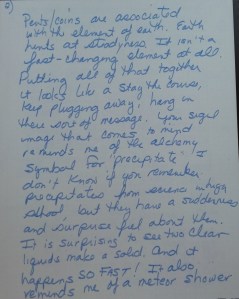 2)
Pents/coins are associated
with the element of earth. Earth
hints at steadyness. It isn't a
fast-changing element at all.
Putting all of that together
it looks like a stay the course,
keep plugging away, hang in
there sort of message. Your sigil
image that comes to mind
reminds me of the alchemy
symbol for "precipitate". I
don't know if you remember
precipitates from science in high
school, but they have a suddenness
and surprise feel about them.
It is surprising to see two clear
liquids make a solid. And it
happens SO FAST! It also
reminds me of a meteor shower